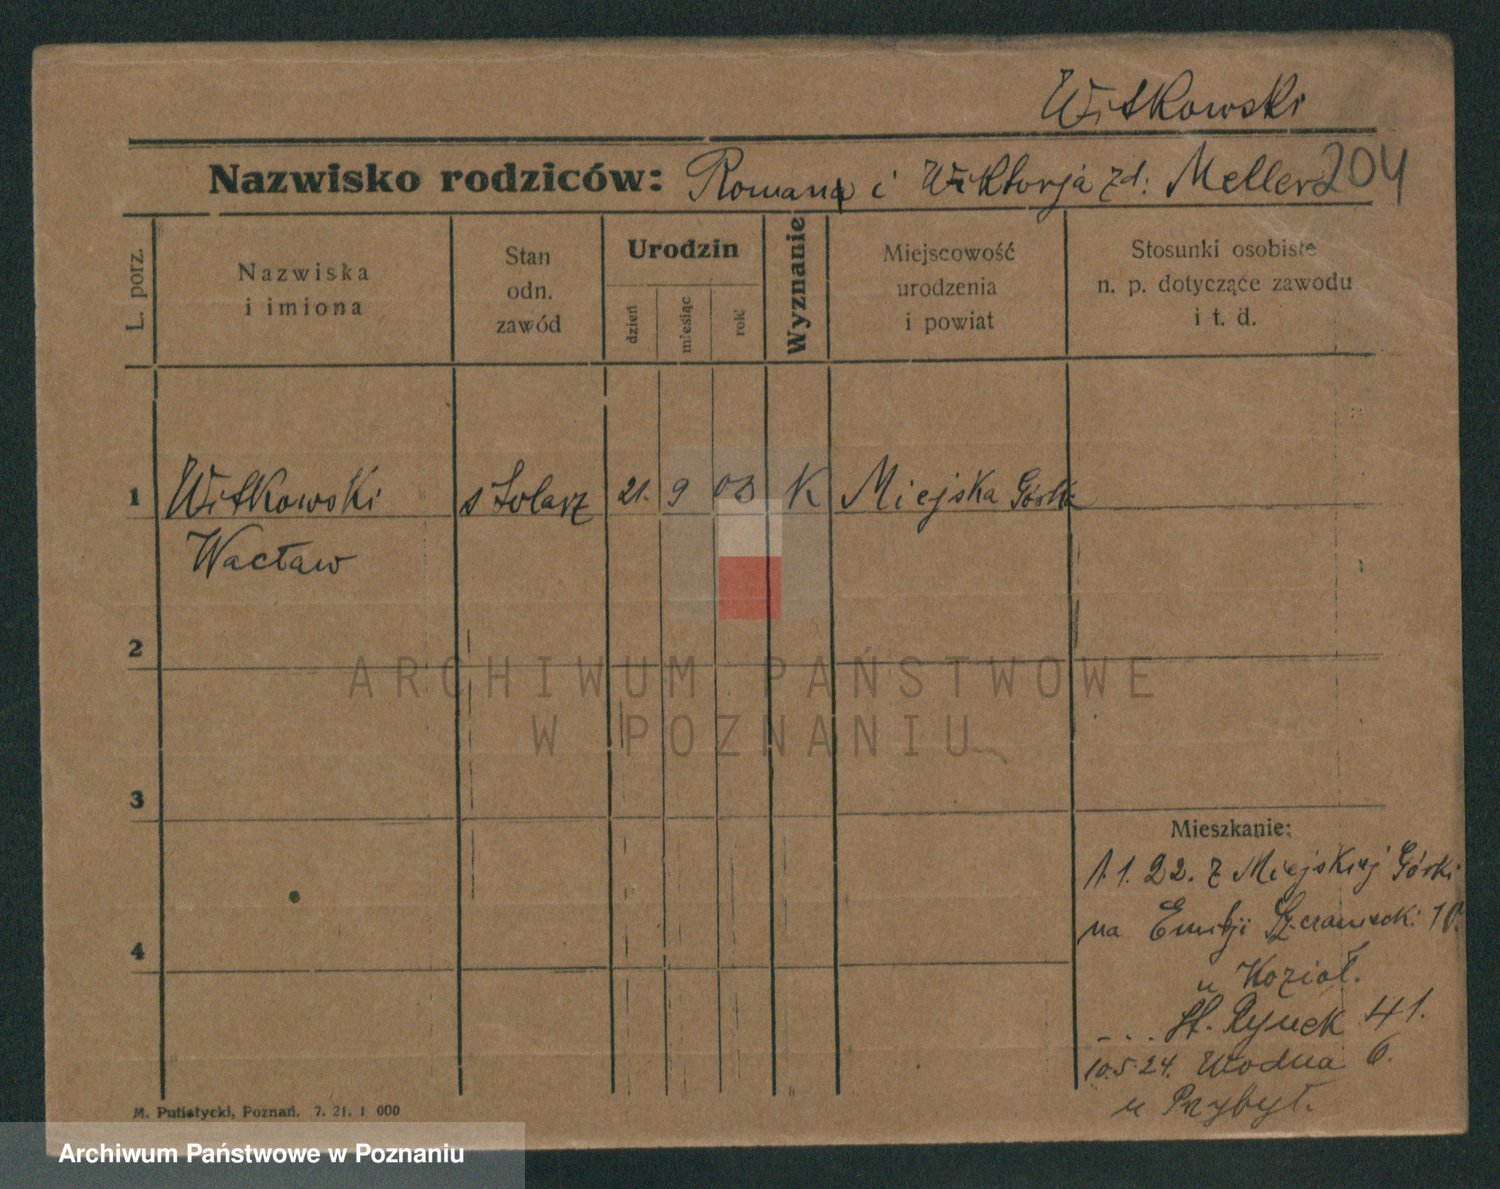 Witkowski
Nazwisko rodziców: Roman i Wiktorja zd: Meller 204
L. porz.
Nazwiska
i imiona
Stan
odn.
zawód
Urodzin
dzień
miesiąc
rok
Wyznanie
Miejscowość
urodzenia
i powiat
Stosunki osobiste
n. p. dotyczące zawodu
i t. d.
1 Witkowski s stolarz 21. 9 03 K Miejska Górka
Wacław
2
ARCHIWUM PAŃSTWOWE
W POZNANIU
3
Mieszkanie:
1.1.22. z Miejskiej Górki
na Emilji Sczanieckiej 10.
4
u Kozioł.
St. Rynek 41.
10.5.24. Wodna 6.
u Przybył.
M. Putiatycki, Poznań. 7. 21. 1 000
Archiwum Państwowe w Poznaniu